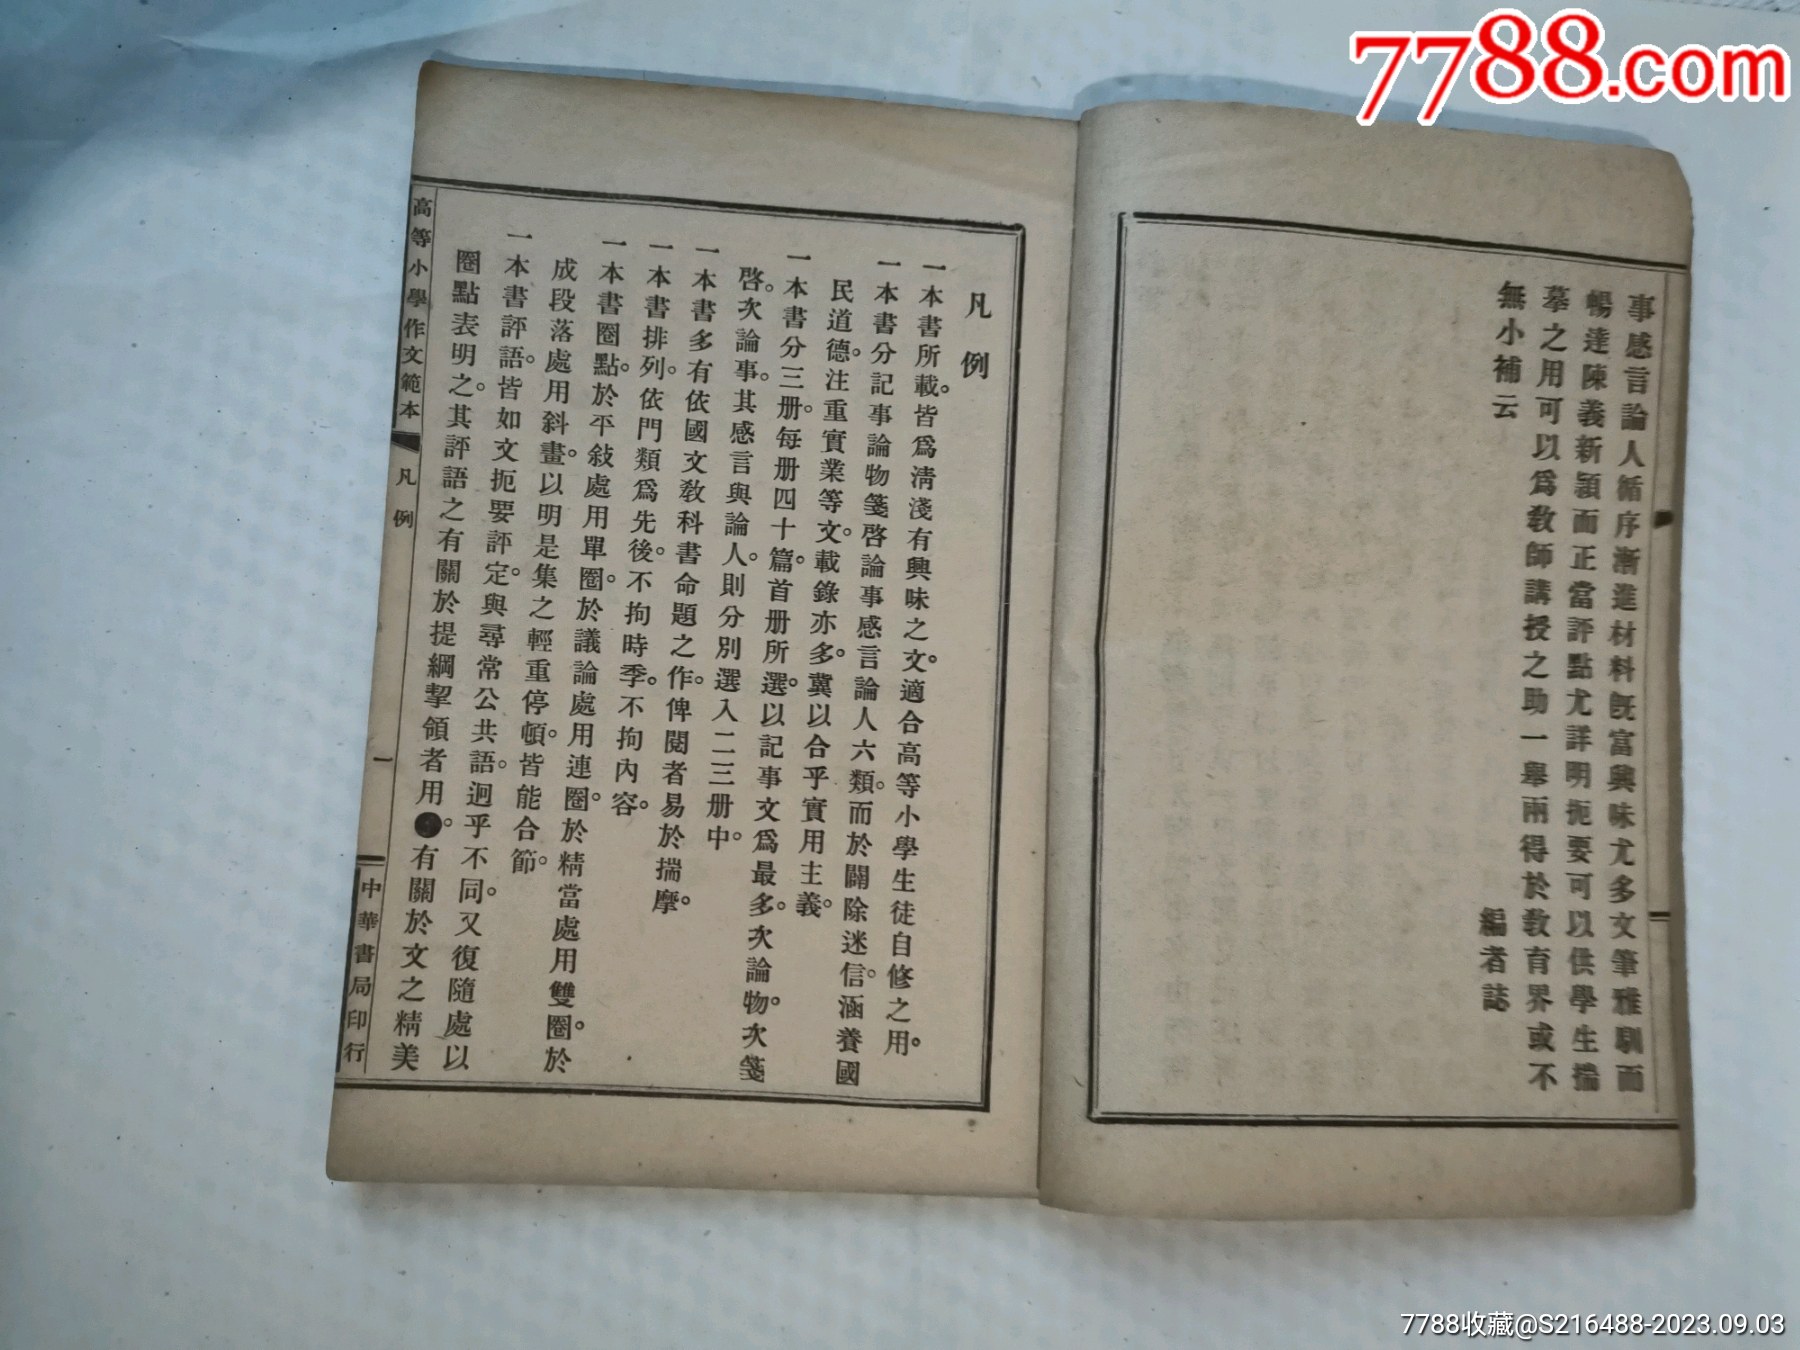 7788.com
事感言論人循序漸進材料既富興味尤多文筆雅馴而
暢達陳義新穎而正當評點尤詳明扼要可以供學生揣
摹之用可以爲教師講授之助一舉兩得於教育界或不
無小補云
編者誌
凡例
一本書所載。皆爲淸淺有興味之文。適合高等小學生徒自修之用。
一本書分記事論物箋啓論事感言論人六類。而於闢除迷信。涵養國
民道德。注重實業等文。載錄亦多。冀以合乎實用主義。
一本書分三册。每册四十篇。首册所選。以記事文爲最多。次論物。次箋
啓。次論事。其感言與論人。則分別選入二三册中。
一本書多有依國文敎科書命題之作。俾閱者易於揣摩。
一本書排列。依門類爲先後。不拘時季。不拘內容。
一本書圈點。於平敍處用單圈。於議論處用連圈。於精當處用雙圈。於
成段落處用斜畫。以明是集之輕重停頓。皆能合節。
一本書評語。皆如文扼要評定。與尋常公共語。迥乎不同。又復隨處以
圈點表明之。其評語之有關於提綱挈領者用。有關於文之精美
高等小學作文範本
凡例
一
中華書局印行
7788收藏@S216488-2023.09.03